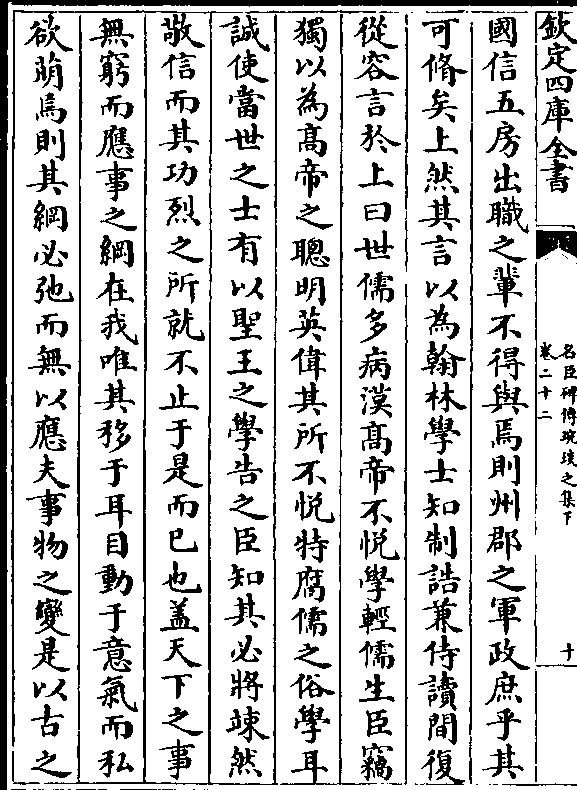 欽定四庫全書
名臣碑傳琬琰之集下
卷二十二
十
國信五房出職之輩不得與焉則州郡之軍政庶乎其
可脩矣上然其言以為翰林學士知制誥兼侍讀間復
從容言於上曰世儒多病漢髙帝不悅學輕儒生臣竊
獨以為髙帝之聰明英偉其所不悅特腐儒之俗學耳
誠使當世之士有以聖王之學告之臣知其必將竦然
敬信而其功烈之所就不止于是而已也盖天下之事
無窮而應事之綱在我唯其移于耳目動于意氣而私
欲萌焉則其綱必弛而無以應夫事物之變是以古之